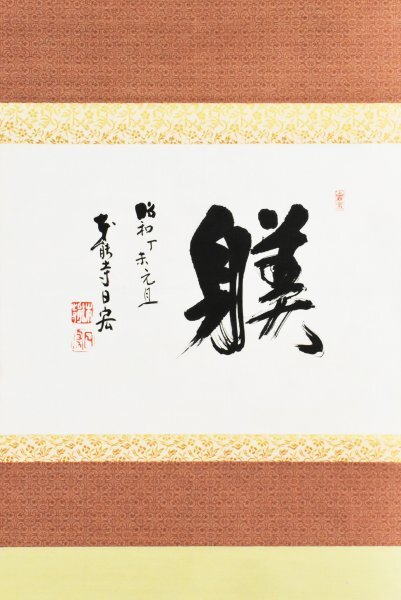 躾
昭和丁未元旦
本能寺日宏